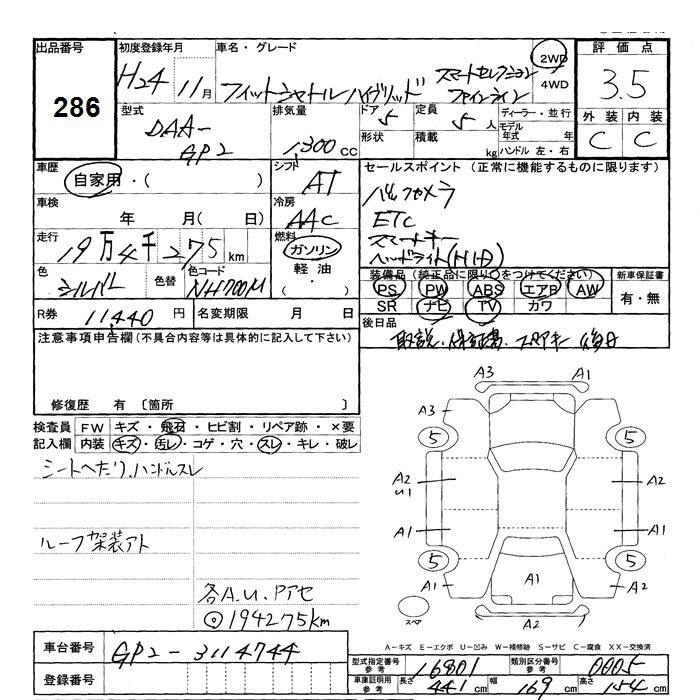 出品番号 初度登録年月 車名・グレード 評価点
286 H24 11月 フィットシャトルハイブリッド スマートセレクション ファインライン 2WD 4WD 3.5
型式 排気量 ドア 定員 ディーラー・並行 外装 内装
DAA-GP2 1,300 CC 5 5 人 モデル年式 年 C C
形状 積載 kg ハンドル 左・右
車歴 シフト セールスポイント(正常に機能するものに限ります)
自家用・( ) AT バックカメラ
車検 冷房 ETC
年 月( 日) AAC スマートキー
走行 燃料 ヘッドライト(HID)
19万4千275km ガソリン 軽油 ・( )
色 色替 色コード 装備品(純正品に限り○をつけてください) 新車保証書
シルバー NH700M PS PW ABS エアB AW 有・無
SR ナビ TV カワ
R券 11,440 円 名変期限 月 日 後日品
取説、保証書、スペアキー 後日
注意事項申告欄(不具合内容等は具体的に記入して下さい)
修復歴 有〔箇所 〕
検査員記入欄 FW キズ・飛石・ヒビ割・リペア跡・×要
内装 キズ・汚レ・コゲ・穴・スレ・キレ・破レ
シートへたり、ハンドルスレ
ルーフ架装アト
各A.U.
◎194275km
A3 A1
A3 A1
5 5
A2 U1 A2
A1 A1
5 5
A1 A1 A2
スペア A2
A-キズ E-エクボ U-凹み W-補修跡 S-サビ C-腐食 XX-交換済
車台番号 GP2-3114744 型式指定番号 参考 16801 類別区分番号 参考 0005
登録番号 車庫証明用 参考 長さ 441 cm 幅 169 cm 高さ 154 cm